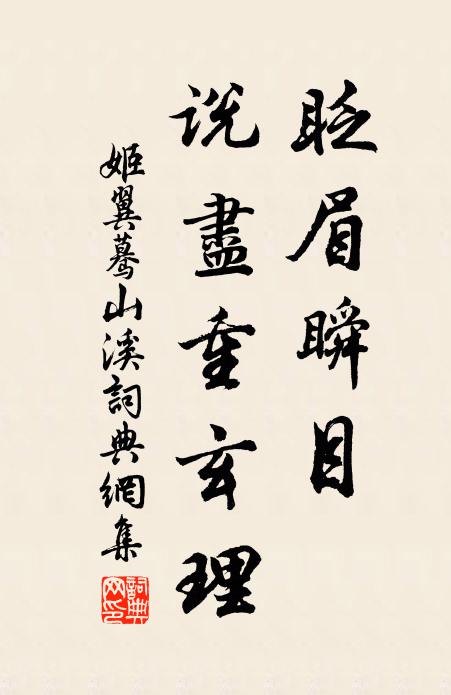 眨眉瞬目
說盡重玄理
姬翼蓦山溪詞典網集
詞典網印